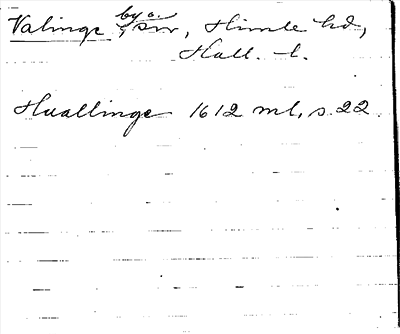 Valinge by o. sn, Himle hd,
Hall. l.
Huallinge 1612 ml, s. 22.